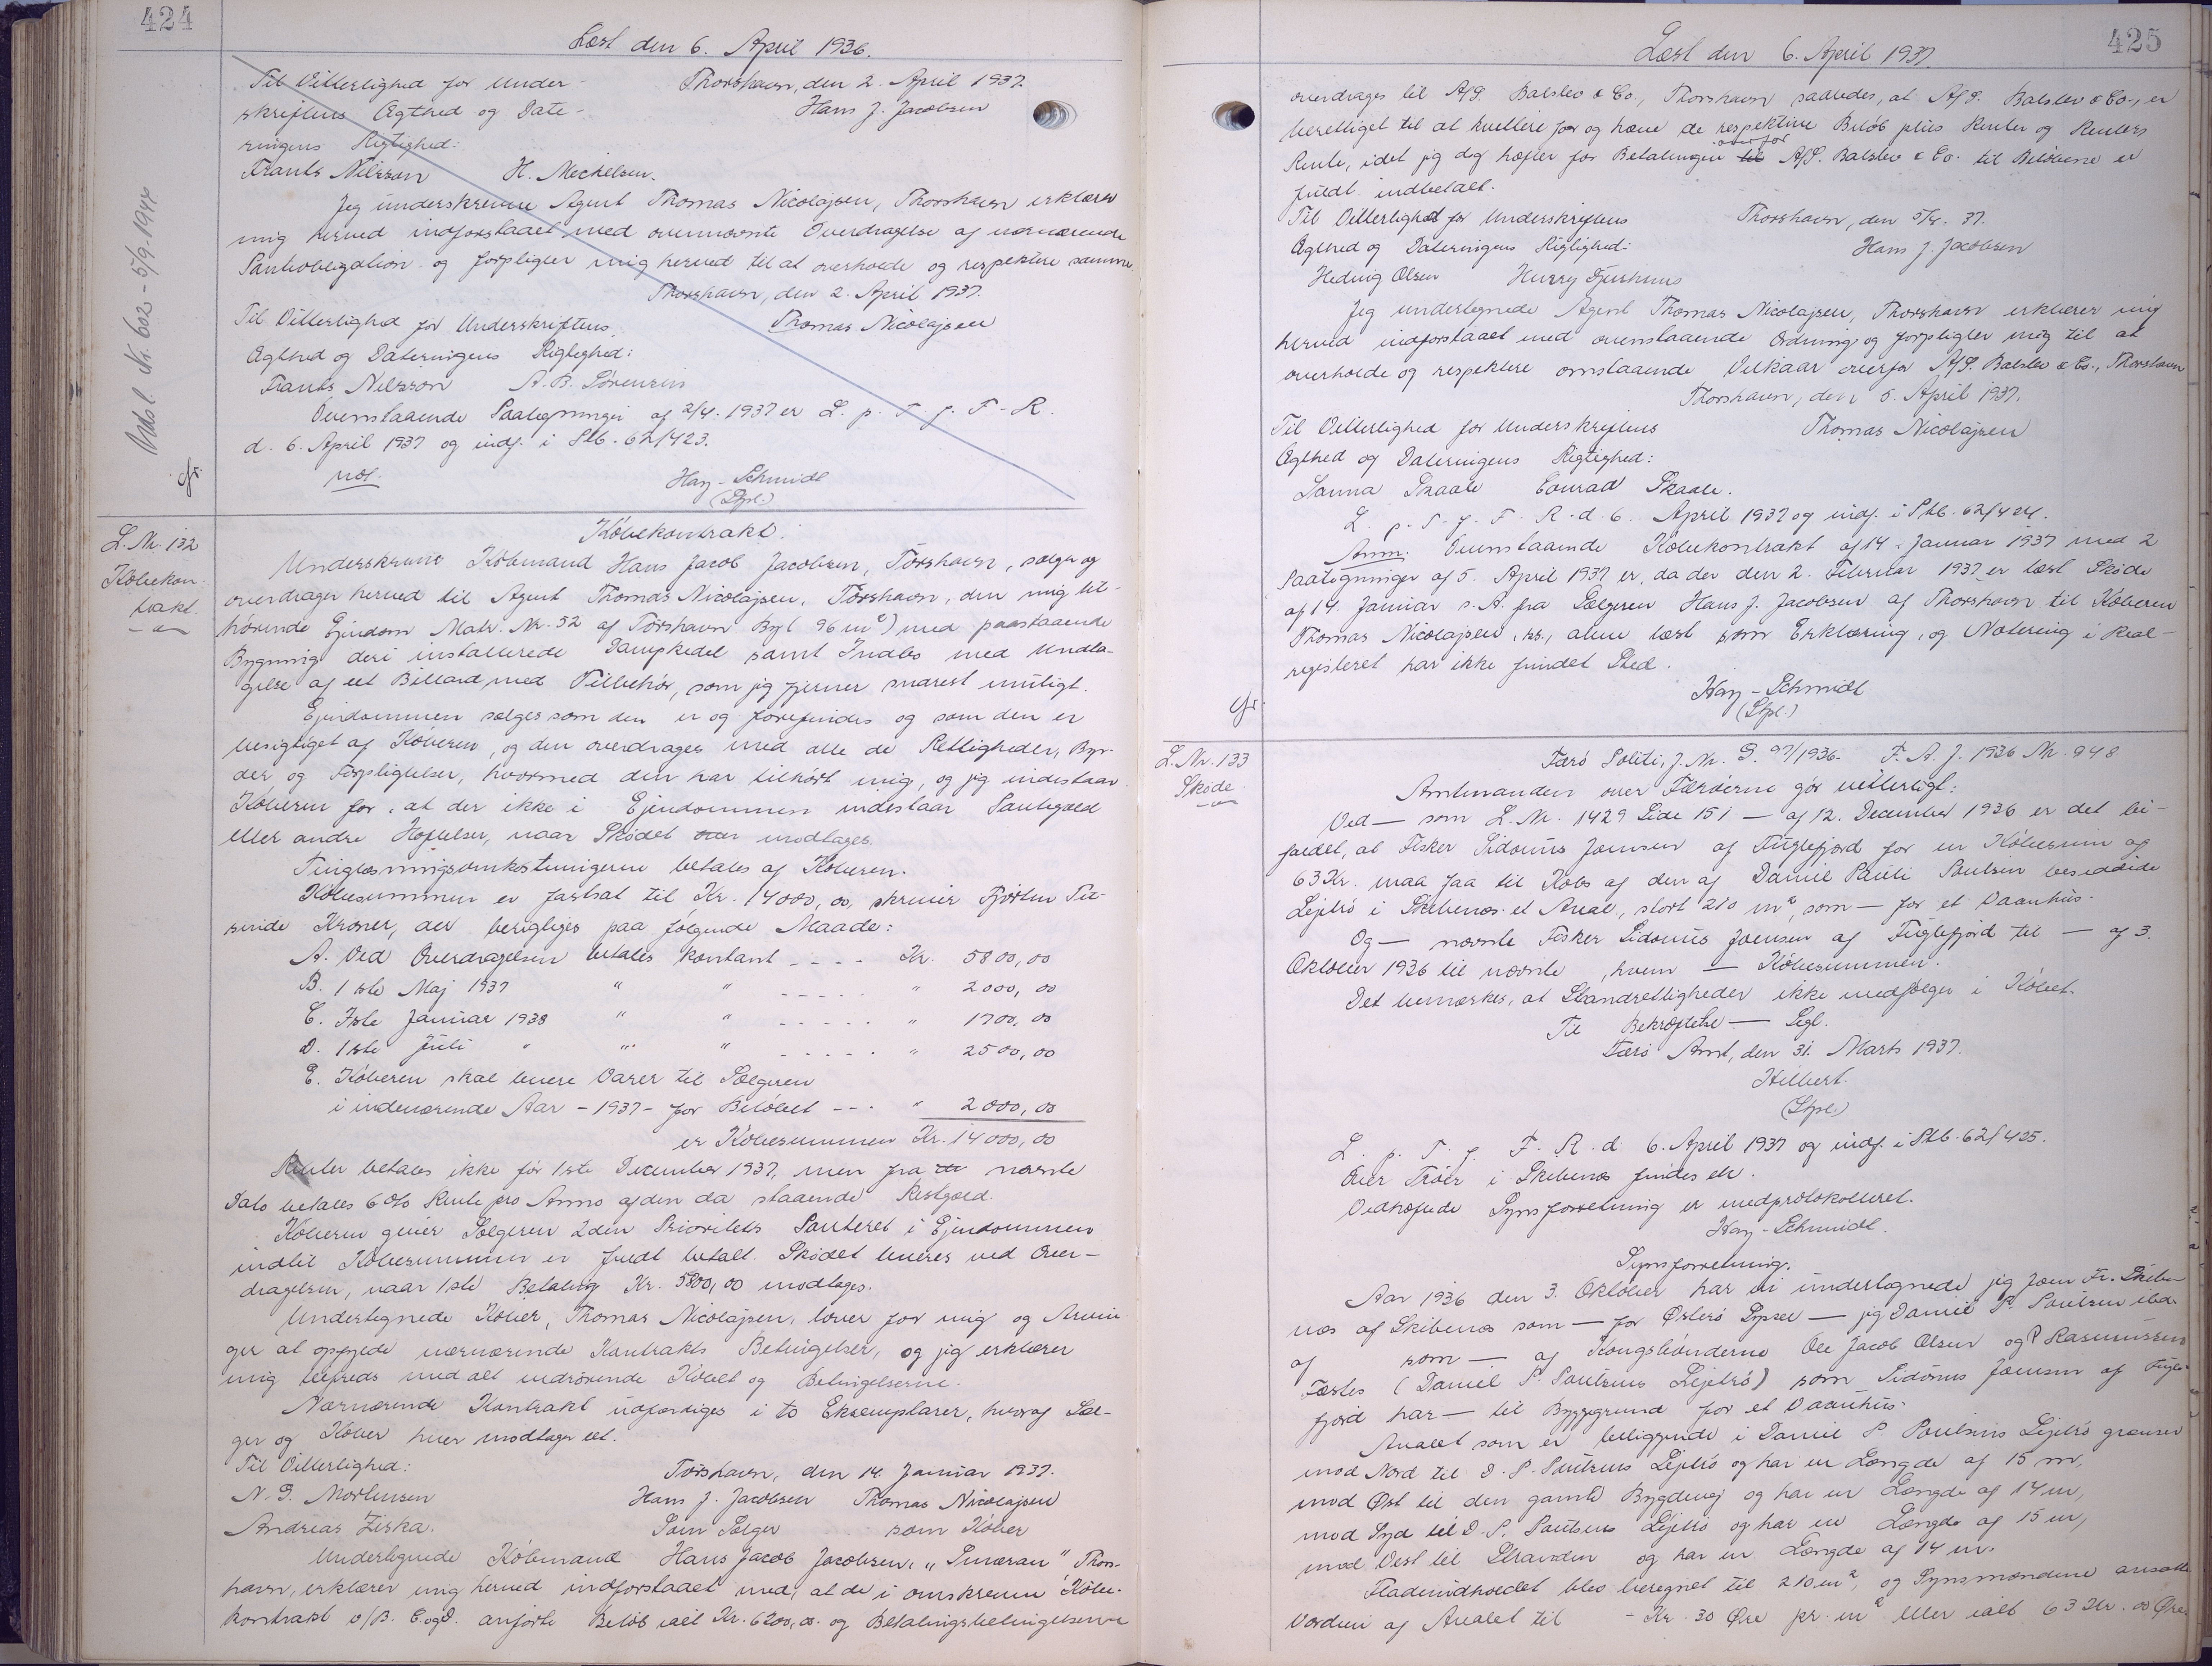 424
Læst den 6. April 1936.
Til Vitterlighed for Under-
skriftens Ægthed og Date-
ringens Rigtighed:
Thorshavn, den 2. April 1937.
Hans J. Jacobsen
Frants Nilsson H. Mechelsen.
Jeg underskrevne Agent Thomas Nicolajsen, Thorshavn erklærer
mig herved indforstaaet med ovennævnte Overdragelse af nærværende
Panteobligation og forpligter mig herved til at overholde og respektere samme
Thorshavn, den 2. April 1937.
Til Vitterlighed for Underskriftens
Thomas Nicolajsen
Ægthed og Dateringens Rigtighed:
Frants Nilsson A. B. Sørensen
Ovenstaaende Paategninger af 2/4. 1937 er L. p. T. f. F. R.
d. 6. April 1937 og indf. i Skb. 62/423.
not. Hay-Schmidt
(Stpl.)
Udsl. Nr. 602 - 5/9-1944
Gr.
L. Nr. 132
Købekon-
trakt.
Købekontrakt.
Underskrevne Købmand Hans Jacob Jacobsen, Tórshavn, sælger og
overdrager herved til Agent Thomas Nicolajsen, Tórshavn, den mig til-
hørende Ejendom Matr. Nr. 52 af Tórshavn By (96 m²) med paastaaende
Bygning deri installerede Dampkedel samt Indbo med Undta-
gelse af et Billard med Tilbehør, som jeg fjerner snarest muligt.
Ejendommen sælges som den er og forefindes og som den er
besigtiget af Køberen, og den overdrages med alle de Rettigheder, Byr-
der og Forpligtelser, hvormed den har tilhørt mig, og jeg indestaar
Køberen for, at der ikke i Ejendommen indestaar Pantegæld
eller andre Hæftelser, naar Skødet modtages.
Tinglæsningsomkostningerne betales af Køberen.
Købesummen er fastsat til Kr. 14000,00, skriver Fjorten Tu-
sinde Kroner, der berigtiges paa følgende Maade:
A. Ved Overdragelsen betales kontant ---- Kr. 5800,00
B. 1ste Maj 1937 " " ----- " 2000,00
C. 1ste Januar 1938 " " ----- " 1700,00
D. 1ste Juli " " " ----- " 2500,00
E. Køberen skal levere Varer til Sælgeren
i indeværende Aar - 1937 - for Beløbet --- " 2000,00
er Købesummen Kr. 14000,00
Renter betales ikke før 1ste December 1937, men fra nævnte
Dato betales 6% Rente pro Anno af den da staaende Restgæld.
Køberen giver Sælgeren 2den Prioritets Panteret i Ejendommen
indtil Købesummen er fuldt betalt. Skødet leveres ved Over-
dragelsen, naar 1ste Betaling Kr. 5800,00 modtages.
Undertegnede Køber, Thomas Nicolajsen, lover for mig og Arvin-
ger at opfylde nærværende Kontrakts Betingelser, og jeg erklærer
mig tilfreds med alt vedrørende Købet og Betingelserne.
Nærværende Kontrakt udfærdiges i to Eksemplarer, hvoraf Sæl-
ger og Køber hver modtager et.
Til Vitterlighed: Tórshavn, den 14. Januar 1937.
N. G. Mortensen Hans J. Jacobsen Thomas Nicolajsen
Andreas Ziska. Som Sælger som Køber
Undertegnede Købmand Hans Jacob Jacobsen, "Smæran" Thors-
havn, erklærer mig herved indforstaaet med, at de i omskrevne Købe-
kontrakt s/B. C. og D. anførte Beløb ialt Kr. 6200,00. og Betalingsbetingelserne
425
Læst den 6. April 1937.
overdrages til A/S. Balslev & Co., Thorshavn saaledes, at A/S. Balslev & Co., er
berettiget til at kvittere for og hæve de respektive Beløb plus Renter og Renters
Rente, idet jeg dog hæfter for Betalingen overfor til A/S. Balslev & Co. til Beløbene er
fuldt indbetalt.
Til Vitterlighed for Underskriftens Thorshavn, den 5/4. 37.
Ægthed og Dateringens Rigtighed: Hans J. Jacobsen
Hedvig Olsen Harry Djurhuus
Jeg undertegnede Agent Thomas Nicolajsen, Thorshavn erklærer mig
herved indforstaaet med ovenstaaende Ordning og forpligter mig til at
overholde og respektere omstaaende Vilkaar overfor A/S. Balslev & Co., Thorshavn
Thorshavn, den 5. April 1937.
Til Vitterlighed for Underskriftens Thomas Nicolajsen
Ægthed og Dateringens Rigtighed:
Sanna Skaale Conrad Skaale.
L. p. T. f. F. R. d. 6. April 1937 og indf. i Skb. 62/424.
Anm. Ovenstaaende Købekontrakt af 14. Januar 1937 med 2
Paategninger af 5. April 1937 er, da der den 2. Februar 1937 er læst Skøde
af 14. Januar s. A. fra Sælgeren Hans J. Jacobsen af Thorshavn til Køberen
Thomas Nicolajsen, ks., alene læst som Erklæring, og Notering i Real-
registeret har ikke fundet Sted.
Hay-Schmidt
(Stpl.)
Gr.
L. Nr. 133
Skøde
Færø Politi, J. Nr. G. 97/1936. F. A. J. 1936 Nr. 948
Amtmanden over Færøerne gør vitterligt:
Ved — som L. Nr. 1429 Side 151 — af 12. December 1936 er det bi-
faldet, at Fisker Sidonius Joensen af Fuglefjord for en Købesum af
63 Kr. maa faa til Købs af den af Daniel Pauli Poulsen besiddede
Lejetrø i Skibenæs et Areal, stort 210 m², som — for et Vaanhus.
Og — nævnte Fisker Sidonius Joensen af Fuglefjord til — af 3.
Oktober 1936 til nævnte, hvem — Købesummen.
Det bemærkes, at Strandrettigheder ikke medfølger i Købet.
Til Bekræftelse — Segl.
Færø Amt, den 31. Marts 1937.
Hilbert.
(Stpl.)
L. p. T. f. F. R. d. 6. April 1937 og indf. i Skb. 62/425.
Over Trøer i Skibenæs findes ek.
Vedhæftede Synsforretning er medprotokolleret.
Hay-Schmidt.
Synsforretning.
Aar 1936 den 3. Oktober har vi undertegnede jeg Joen Fr. Skibe-
næs af Skibenæs som — for Østerø Syssel — jeg Daniel P. Poulsen ibd.
af som — af Kongsbønderne Ole Jacob Olsen og P Rasmussens
Fæstes (Daniel P. Poulsens Lejetrø) som Sidonius Joensen af Fugle-
fjord har — til Byggegrund for et Vaanhus.
Arealet som er beliggende i Daniel P. Poulsens Lejetrø grænser
mod Nord til D. P. Poulsens Lejetrø og har en Længde af 15 m,
mod Øst til den gamle Bygdevej og har en Længde af 14 m,
mod Syd til D. P. Poulsens Lejetrø og har en Længde af 15 m,
mod Vest til Stranden og har en Længde af 14 m.
Fladeindholdet blev beregnet til 210 m², og Synsmændene ansatte
Værdien af Arealet til - Kr. 30 Øre pr. m² eller ialt 63 Kr. 00 Øre.